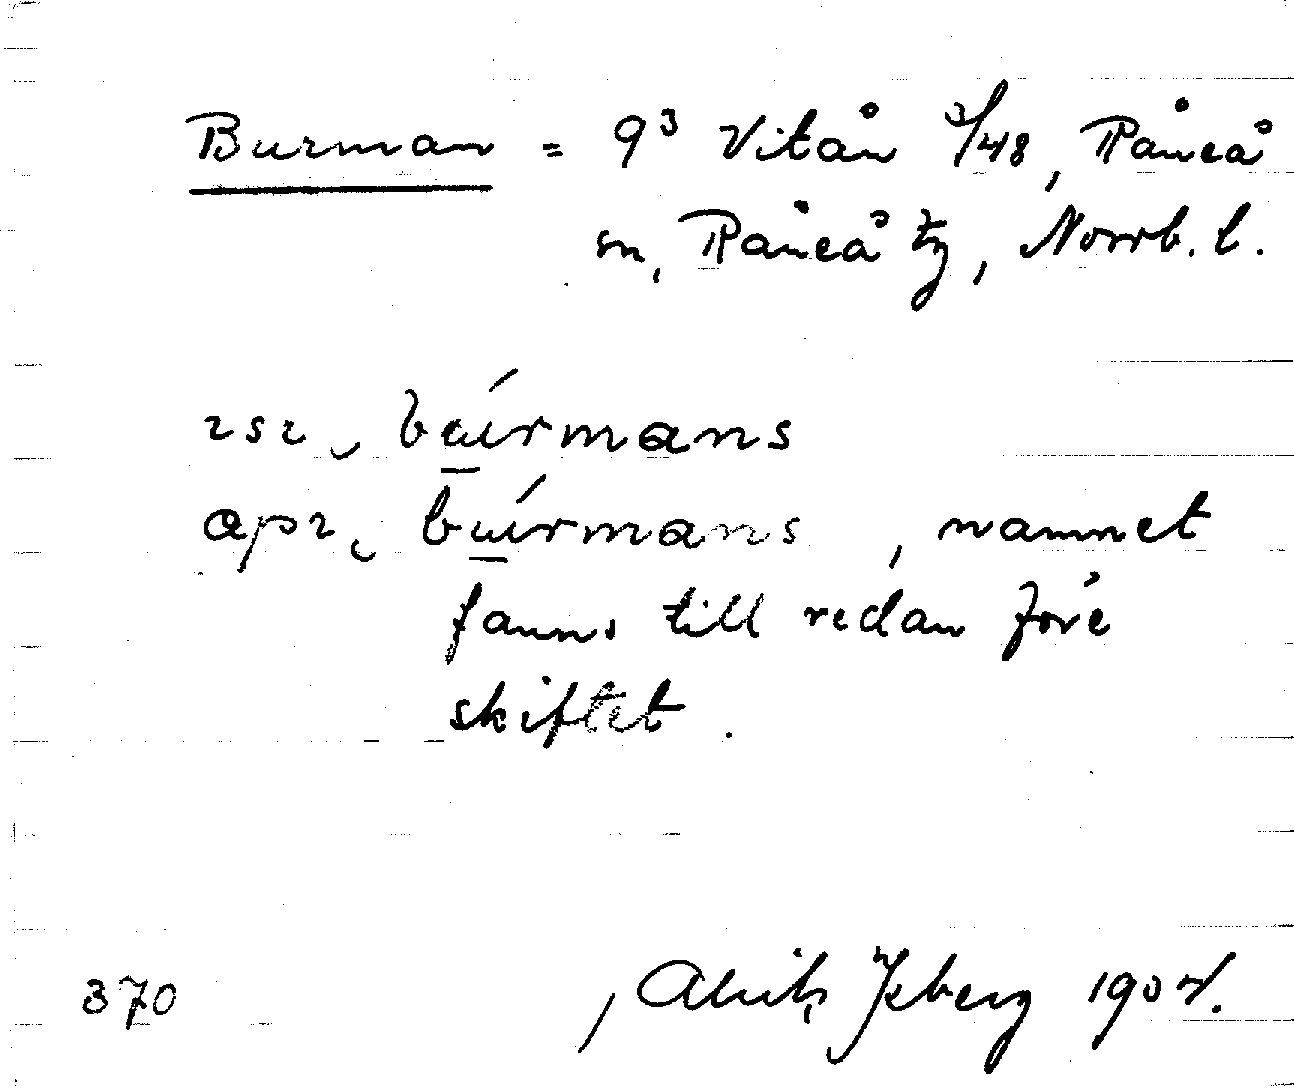 Burman = 9³ Vitån 3/48, Råneå
sn, Råneå tg, Norrb. l.
rsr, búrmans
apr, búrmans, namnet
fanns till redan före
skiftet.
370 Isberg 190